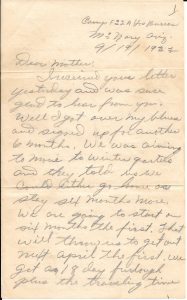 1
Camp F-22-A 4/0 Barren
McNary Ariz.
9/19/193
Dear Mother:
I received your letter
yesterday and was sure
glad to hear from you.
Well I got over my blues
and signed up for another
6 months. We was aiming
to move to winter quarters
and they told us we
could either go home or
stay six months more.
We are going to start on
six months the first. That
will throw us to get out
next april the first. we
get an 18 day furlough
plus the traveling time